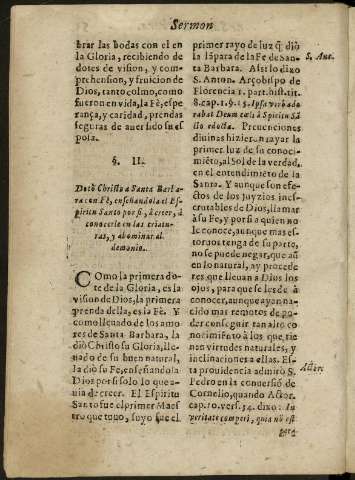 Sermon
brar las bodas con el en
la Gloria, recibiendo de
dotes de vision, y com
prehension, y fruicion de
Dios, tanto colmo, como
fueron en vida, la Fè, espe
rança, y caridad, prendas
seguras de aver sido su es
posa.
§. II.
Dotò Christo a Santa Barba
ra con Fè, enseñandola el Es
piritu Santo por si, à creer, à
conocerle en las criatu-
ras, y abominar al
demonio.
COmo la primera do-
te de la Gloria, es la
vision de Dios, la primera
prenda della, es la Fè. Y
como llevado de los amo
res de Santa Barbara, la
diò Christo su Gloria, lle-
vado de su buen natural,
la diò su Fe, enseñandola
Dios por si solo lo que a-
via de creer. El Espiritu
Santo fue el primer Maes
tro que tuvo, suyo fue el
primer rayo de luz q̃ diò
la lápara de la Fe de San-
ta Barbara. Assi lo dixo
S. Anton. Arçobispo de
Florencia 1. part. hist. tit.
8. cap. 1. §. 15. Ipsa verbo ado
rabat Deum cæli à Spiritu Sã
cto edocta. Prevenciones
divinas hizieron rayar la
primer luz de su conoci-
miẽto, al Sol de la verdad,
en el entendimiẽto de la
Santa. Y aunque son efe-
ctos de los Iuyzios ines-
crutables de Dios, llamar
à su Fe, y por si a quien no
le conoce, aunque mas es-
torvos tenga de su parte,
no se puede negar, que aũ
en lo natural, ay procede
res que llevan a Dios los
ojos, para que se les dè à
conocer, aunque ayan na-
cido mas remotos de po-
der conseguir tan alto co
nocimiento à los que tie-
nen virtudes naturales, y
inclinaciones a ellas. Es-
ta providencia admirò S.
Pedro en la conversiõ de
Cornelio, quando Actor.
cap. 10. vers. 34. dixo: In
veritate comperi, quia nõ est
S. Ant.
Actor.